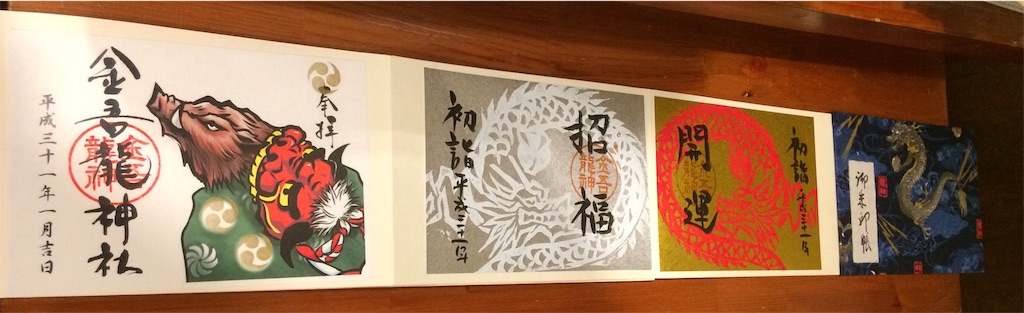 奉拝
金吾龍神社
金吾龍神
平成三十一年一月吉日
招福
金吾龍神
初詣 平成三十一年
初詣 平成三十一年
開運
御朱印帳